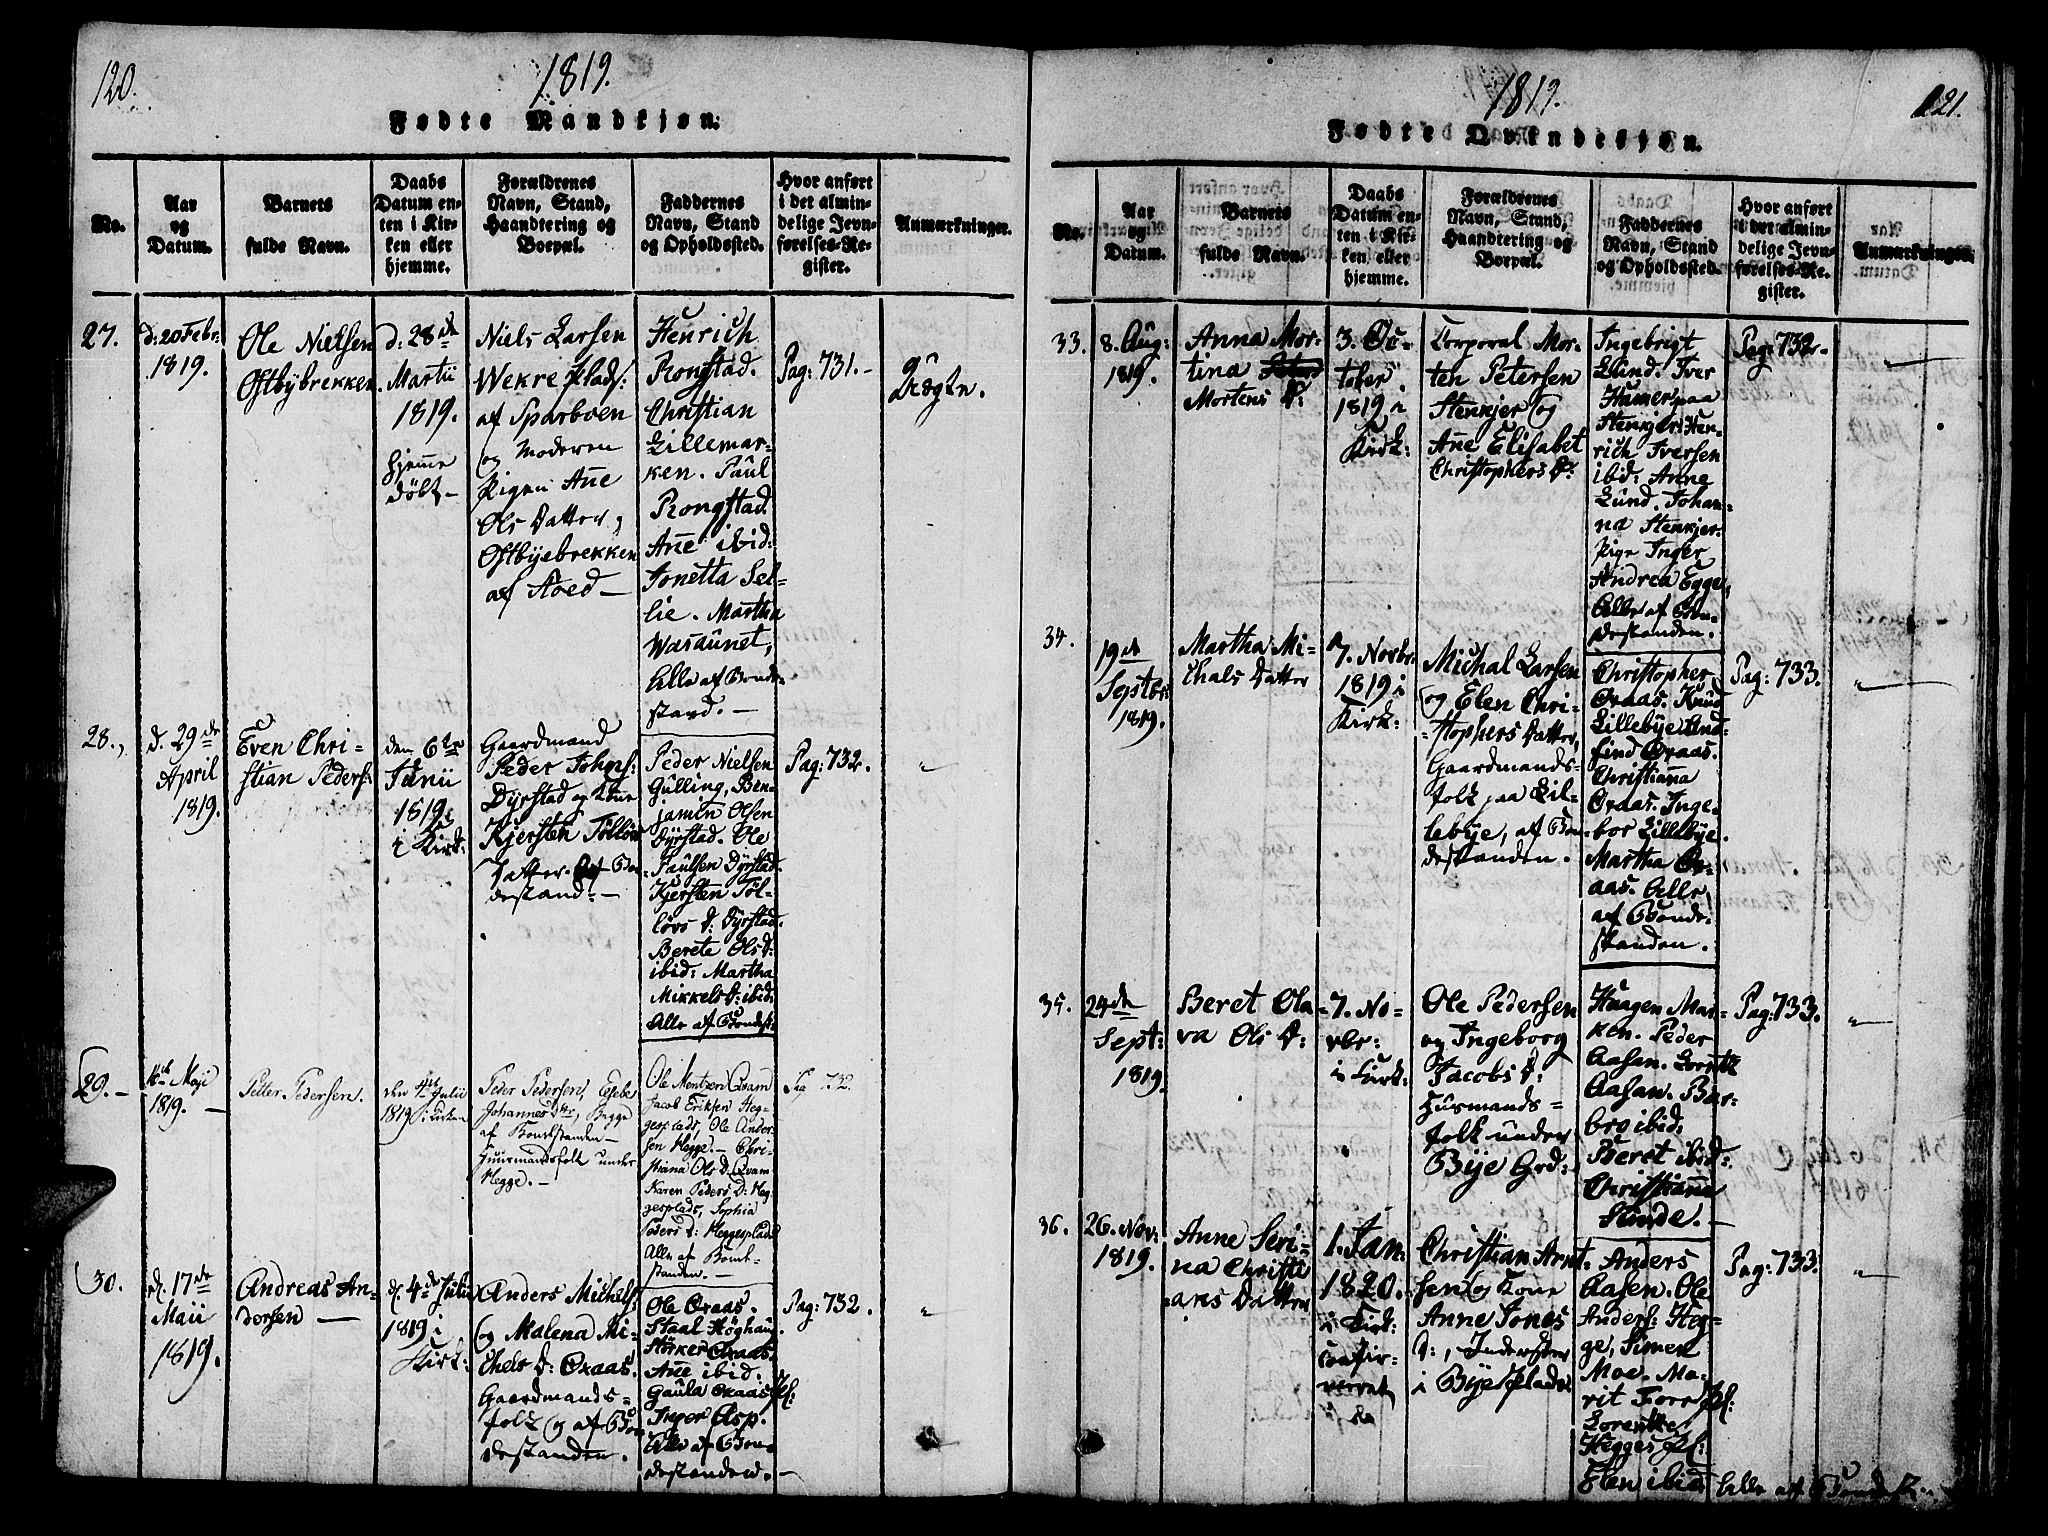 120.
1819.
Fødte Mandkjøn.
No.
Aar
og
Datum.
Barnets
fulde Navn.
Daabs
Datum en-
ten i Kir-
ken eller
hjemme.
Forældrenes
Navn, Stand,
Haandtering og
Boepæl.
Faddernes
Navn, Stand
og Opholdssted.
Hvor anført
i det almin-
delige Jevn-
førelses-Re-
gister.
Anmærkninger.
27.
d: 20 Febr:
1819.
Ole Nielsen
Østbybrekken
d: 28de
Martii
1819.
hjemme
døbt –
Niels Larsen
Wekre plads:
af Sparboen
og Moderen
Pigen Ane
Ols Datter,
Østbyebrekken
af Stoed –
Henrich
Rongstad.
Christian
Lillemar-
ken. Paul
Rongstad.
Ane ibid:
Jonetta Sel-
lie. Martha
Wasaunet,
Alle af Bonde-
stand. –
Pag: 731. –
Uægte.
28.
d. 29de
April
1819.
Even Chri-
stian Peders:
den 6te
Junii
1819
i Kirk:
Gaardmand
Peder Johns:
Dyrstad og Kone
Kjersten Tølløvs
Datter. Af Bon-
destand: –
Peder Nielsen
Gulling, Ben-
jamin Olsen
Dyrstad. Ole
Paulsen Dyrstad.
Kjersten Tøl-
løvs D: Dyrstad.
Berete Ols D:
ibid: Martha
Mikkels D: ibid:
Alle af Bondest:
Pag: 732.
„
29. –
16de Maji
1819. –
Petter Pedersen.
den 4de Julii
1819 i Kirken
Peder Pedersen,
Johannes Dtr, Begge
af Bondestanden –
Huusmandsfolk under
Hegge. –
Ole Mentzen Qvam
Jacob Eriksen Heg-
gesplads, Ole Ander-
sen Hegge. – Chri-
stiana Ols D: Qvam
Karen Peders D: Heg-
gesplads, Sophia
Peders D: Heggesplads
Alle af Bonde-
standen. –
Pag 732.
30.
d. 17de
Maii
1819.
Andreas An-
dersen –
d. 4de Julii
1819 i
Kirk:
Anders Michels:
og Malena Mi-
chels D: Oxaas.
Gaardmands-
folk og af Bon-
destanden.
Ole Oxaas.
Staal Høghaug.
Hørker Oxaas.
Ane ibid:
Gaula Oxaas pl:
Inger Asp.
Alle af Bon-
destanden. –
Pag: 732.
„
1819.
121.
Fødte Qvindekjøn.
No.
Aar
og
Datum.
Barnets
fulde Navn.
Daabs
Datum en-
ten i Kir-
ken eller
hjemme.
Forældrenes
Navn, Stand,
Haandtering og
Boepæl.
Faddernes
Navn, Stand
og Opholdssted.
Hvor anført
i det almin-
delige Jevn-
førelses-Re-
gister.
Anmærkninger.
33.
8. Aug:
1819.
Anna Mor-
tina
Mortens D:
3. Oc-
tober
1819 i
Kirk:
Corporal Mor-
ten Petersen
Stenkjer og
Ane Elisabet
Christophers D:
Ingebrigt
Lund. Iver
Hamer paa
Stenkjer. Hen-
rich Iversen
ibid: Anne
Lund. Johan-
na Stenkjer.
Pige Inger
Andrea Egge.
Alle af Bon-
destanden.
Pag: 732.
„
34.
19de
Septbr:
1819.
Martha Mi-
chals Datter
7. Novbr:
1819 i
Kirk:
Michal Larsen
og Elen Chri-
stophers Datter,
Gaardmands-
folk paa Lil-
lebye, af Bon-
destanden.
Christopher
Oxaas. Knud
Lillebye. And-
find Oxaas.
Christianna
Oxaas. Inge-
bor Lillebye.
Martha Ox-
aas. Alle
af Bonde-
standen.
Pag: 733.
„
35.
24de
Sept:
1819.
Beret Ola-
va Ols D:
7. No-
vbr:
i Kirk:
Ole Pedersen
og Ingeborg
Jacobs D:
Husmands-
folk under
Bye Grd:
Haagen Mar-
ken. Peder
Aasan. Lorntz
Aasan. Bar-
bro ibid.
Beret ibid:
Christianna
Sunde. –
Pag: 733.
„
36.
26. Nov:
1819.
Anne Seri-
na Christi-
ans Datter
1. Jan:
1820.
i Kirk:
confir-
meret
da
Christian Arnt-
sen og Kone
Anne Jones
D:, Inderster
i Byes Pladse
Anders
Aasen. Ole
Anders: Heg-
ge, Simen
Moe. Ma-
rit Forr pl:
Lorentse
Hegges pl:
Elen ibid. Alle af Bondest.
Pag: 733.
„